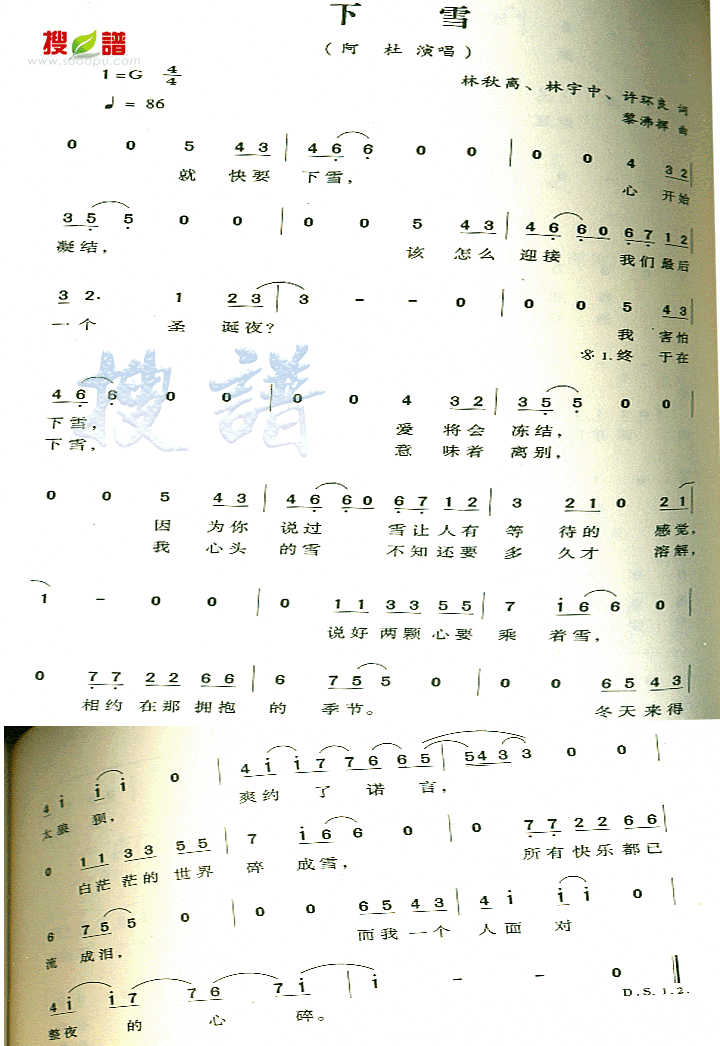 搜谱
www.sooopu.com
下 雪
(阿 杜 演唱)
1=G 4/4
林秋离、林宇中、许环良 词
♩= 86
黎沸挥 曲
0 0 5 43 | 46 6 0 0 | 0 0 4 32 |
就 快要 下雪, 心 开始
35 5 0 0 | 0 0 5 43 | 46 60 67 12 |
凝结, 该 怎么 迎接 我们最后
3 2· 1 23 | 3 - - 0 | 0 0 5 43 |
一个 圣 诞夜? 我 害怕
1.终 于在
46 6 0 0 | 0 0 4 32 | 35 5 0 0 |
下雪, 爱 将会 冻结,
下雪, 意 味着 离别,
搜谱
0 0 5 43 | 46 60 67 12 | 3 21 0 21 |
因 为你 说过 雪让人有 等 待的 感觉,
我 心头 的雪 不知还要 多 久才 溶解,
1 - 0 0 | 0 11 33 55 | 7 i6 6 0 |
说好两颗心要 乘 着雪,
0 77 22 66 | 6 75 5 0 | 0 0 65 43 |
相约在那拥抱 的 季节。 冬天来得
4 i i i 0 | 4 i i7 76 65 | 543 3 0 0 |
太狼狈, 爽约 了 诺 言,
0 11 33 55 | 7 i6 6 0 | 0 77 22 66 |
白茫茫的世界 碎 成雪, 所有快乐都已
6 75 5 0 | 0 0 65 43 | 4 i i i 0 |
流 成泪, 而我一个 人面 对
4 i i7 76 7 i | i - - 0 ‖
D.S.1.2.
整夜 的 心 碎。